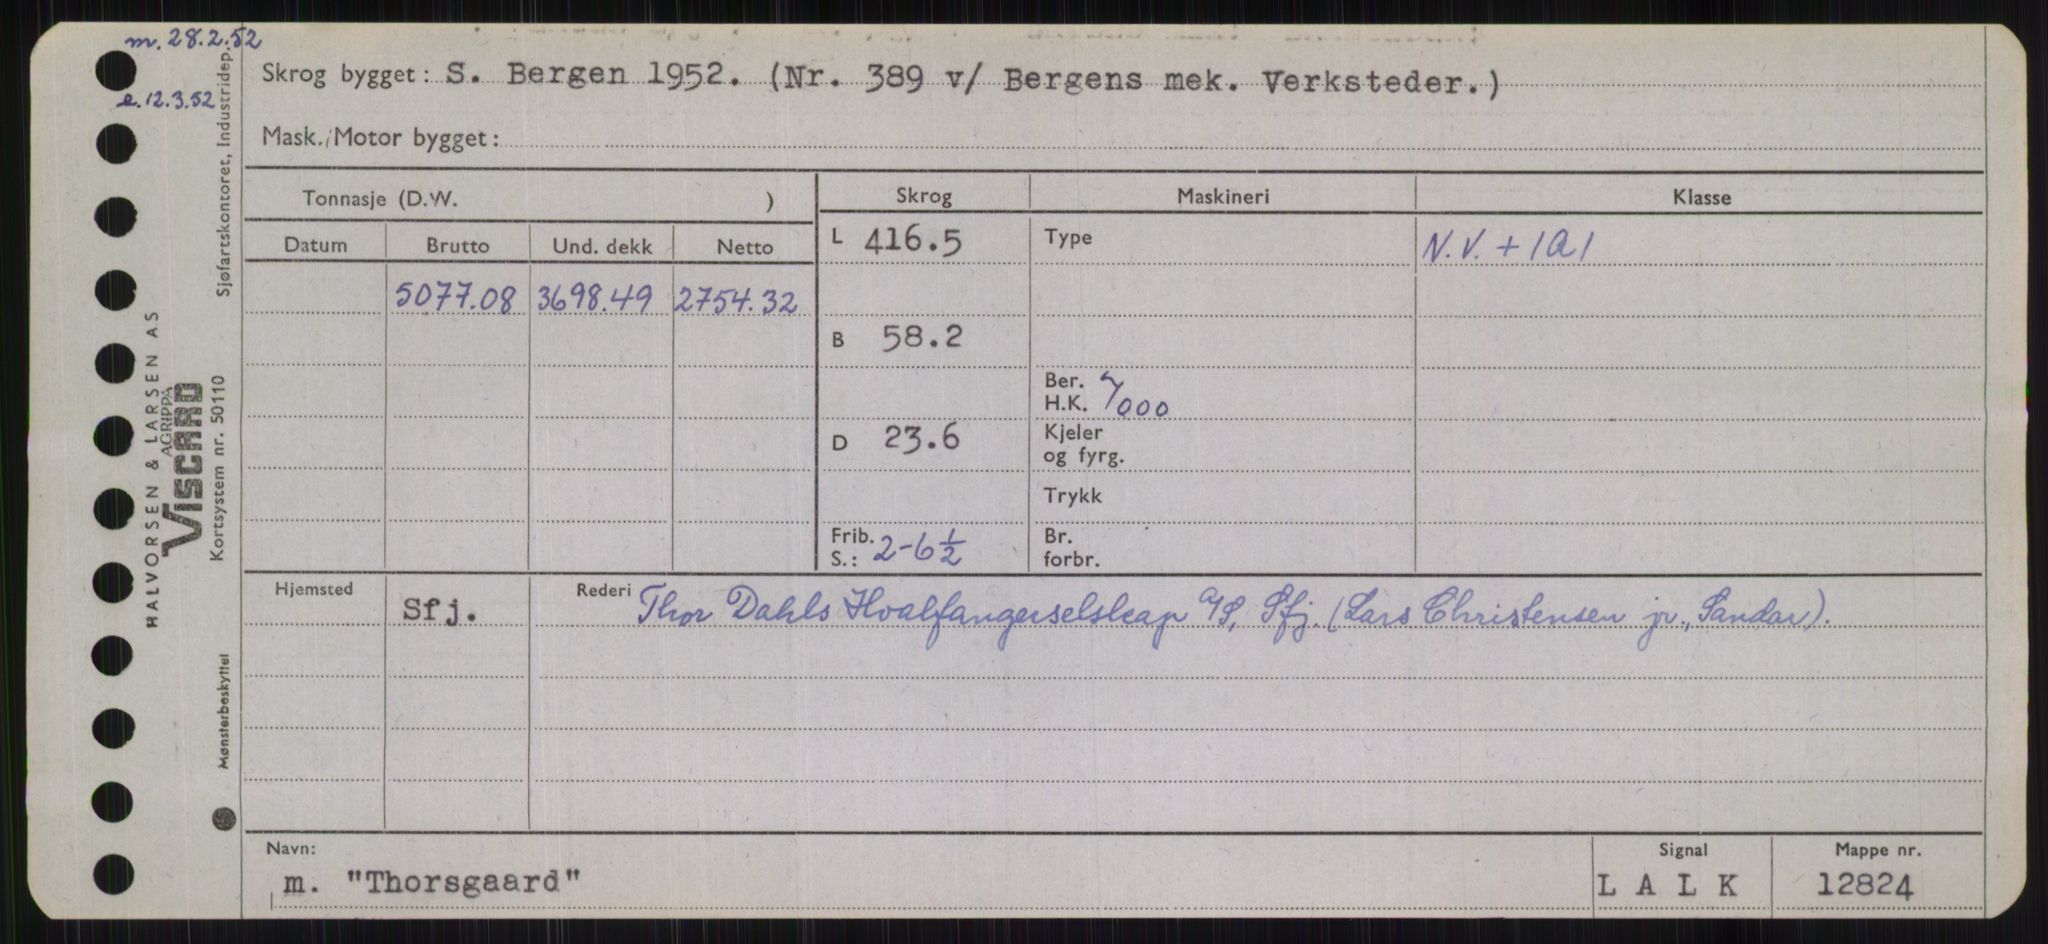 m. 28.2.52
e. 12.3.52
Skrog bygget: S. Bergen 1952. (Nr. 389 v/ Bergens mek. Verksteder.)
Mask./Motor bygget:
Tonnasje (D.W. )
Skrog Maskineri Klasse
Datum Brutto Und. dekk Netto
L 416.5 Type N.V. + 1A1
5077.08 3698.49 2754.32
B 58.2
Ber. H.K. 7000
D 23.6 Kjeler og fyrg.
Trykk
Frib. S.: 2-6 1/2 Br. forbr.
Hjemsted Sfj. Rederi Thor Dahls Hvalfangerselskap A/S, Sfj. (Lars Christensen jr., Sandar).
Navn: Signal Mappe nr.
m. "Thorsgaard" L A L K 12824
HALVORSEN & LARSEN AS
AGRIPPA
VISCARD
Kortsystem nr. 50110
Sjøfartskontoret, Industridep.
Mønsterbeskyttet